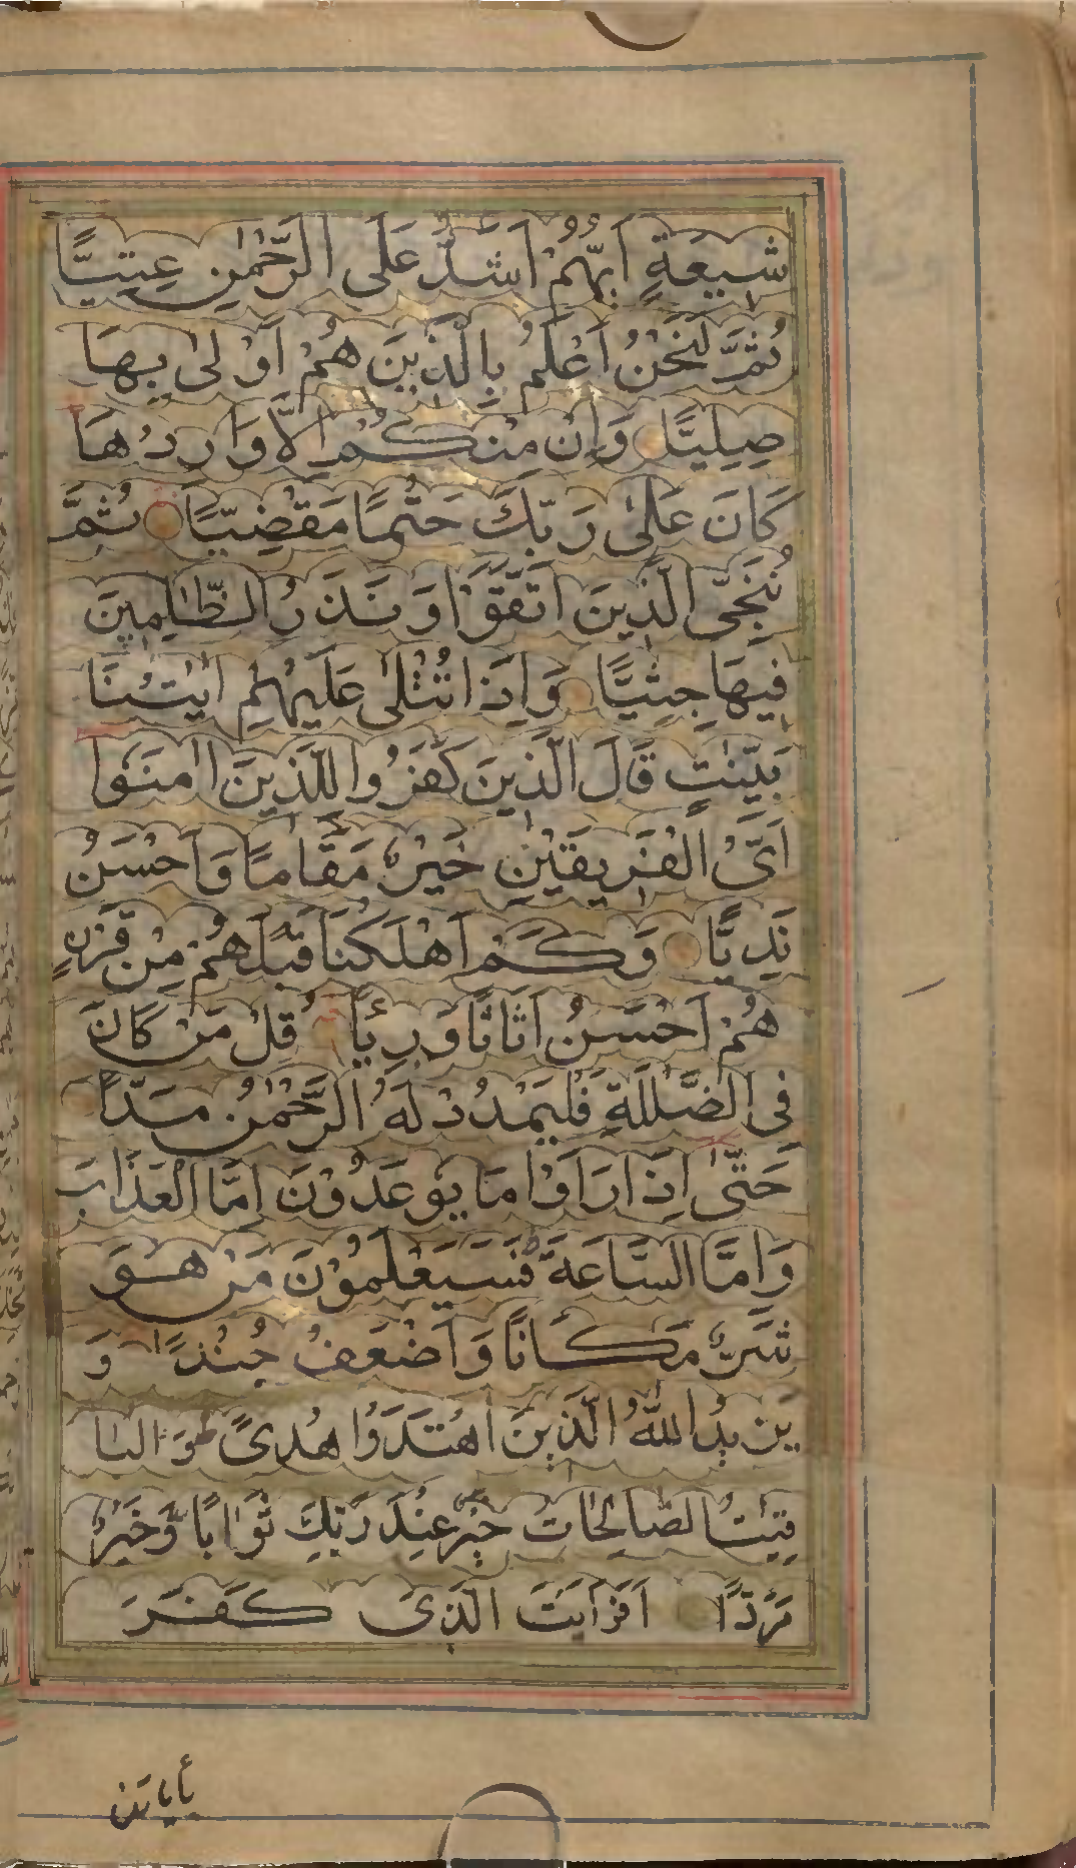 شِيعَةٍ اَيُّهُمْ اَشَدُّ عَلَى الرَّحْمٰنِ عِتِيًّا
ثُمَّ لَنَحْنُ اَعْلَمُ بِالَّذِينَ هُمْ اَوْلٰى بِهَا
صِلِيًّا وَاِنْ مِنْكُمْ اِلَّا وَارِدُهَا
كَانَ عَلٰى رَبِّكَ حَتْمًا مَقْضِيًّا ثُمَّ
نُنَجِّى الَّذِينَ اتَّقَوْا وَنَذَرُ الظّٰلِمِينَ
فِيهَا جِثِيًّا وَاِذَا تُتْلٰى عَلَيْهِمْ اٰيٰتُنَا
بَيِّنٰتٍ قَالَ الَّذِينَ كَفَرُوا لِلَّذِينَ اٰمَنُوا
اَىُّ الْفَرِيقَيْنِ خَيْرٌ مَقَامًا وَاَحْسَنُ
نَدِيًّا وَكَمْ اَهْلَكْنَا قَبْلَهُمْ مِنْ قَرْنٍ
هُمْ اَحْسَنُ اَثَاثًا وَرِءْيًا قُلْ مَنْ كَانَ
فِى الضَّلٰلَةِ فَلْيَمْدُدْ لَهُ الرَّحْمٰنُ مَدًّا
حَتّٰى اِذَا رَاَوْا مَا يُوعَدُوْنَ اِمَّا الْعَذَابَ
وَاِمَّا السَّاعَةَ ط فَسَيَعْلَمُوْنَ مَنْ هُوَ
شَرٌّ مَكَانًا وَاَضْعَفُ جُنْدًا وَ
يَزِيدُ اللّٰهُ الَّذِينَ اهْتَدَوْا هُدًى ط وَالْبٰا
قِيٰتُ الصَّالِحَاتُ خَيْرٌ عِنْدَ رَبِّكَ ثَوَابًا وَّخَيْرٌ
مَرَدًّا اَفَرَاَيْتَ الَّذِى كَفَرَ
بأياتن